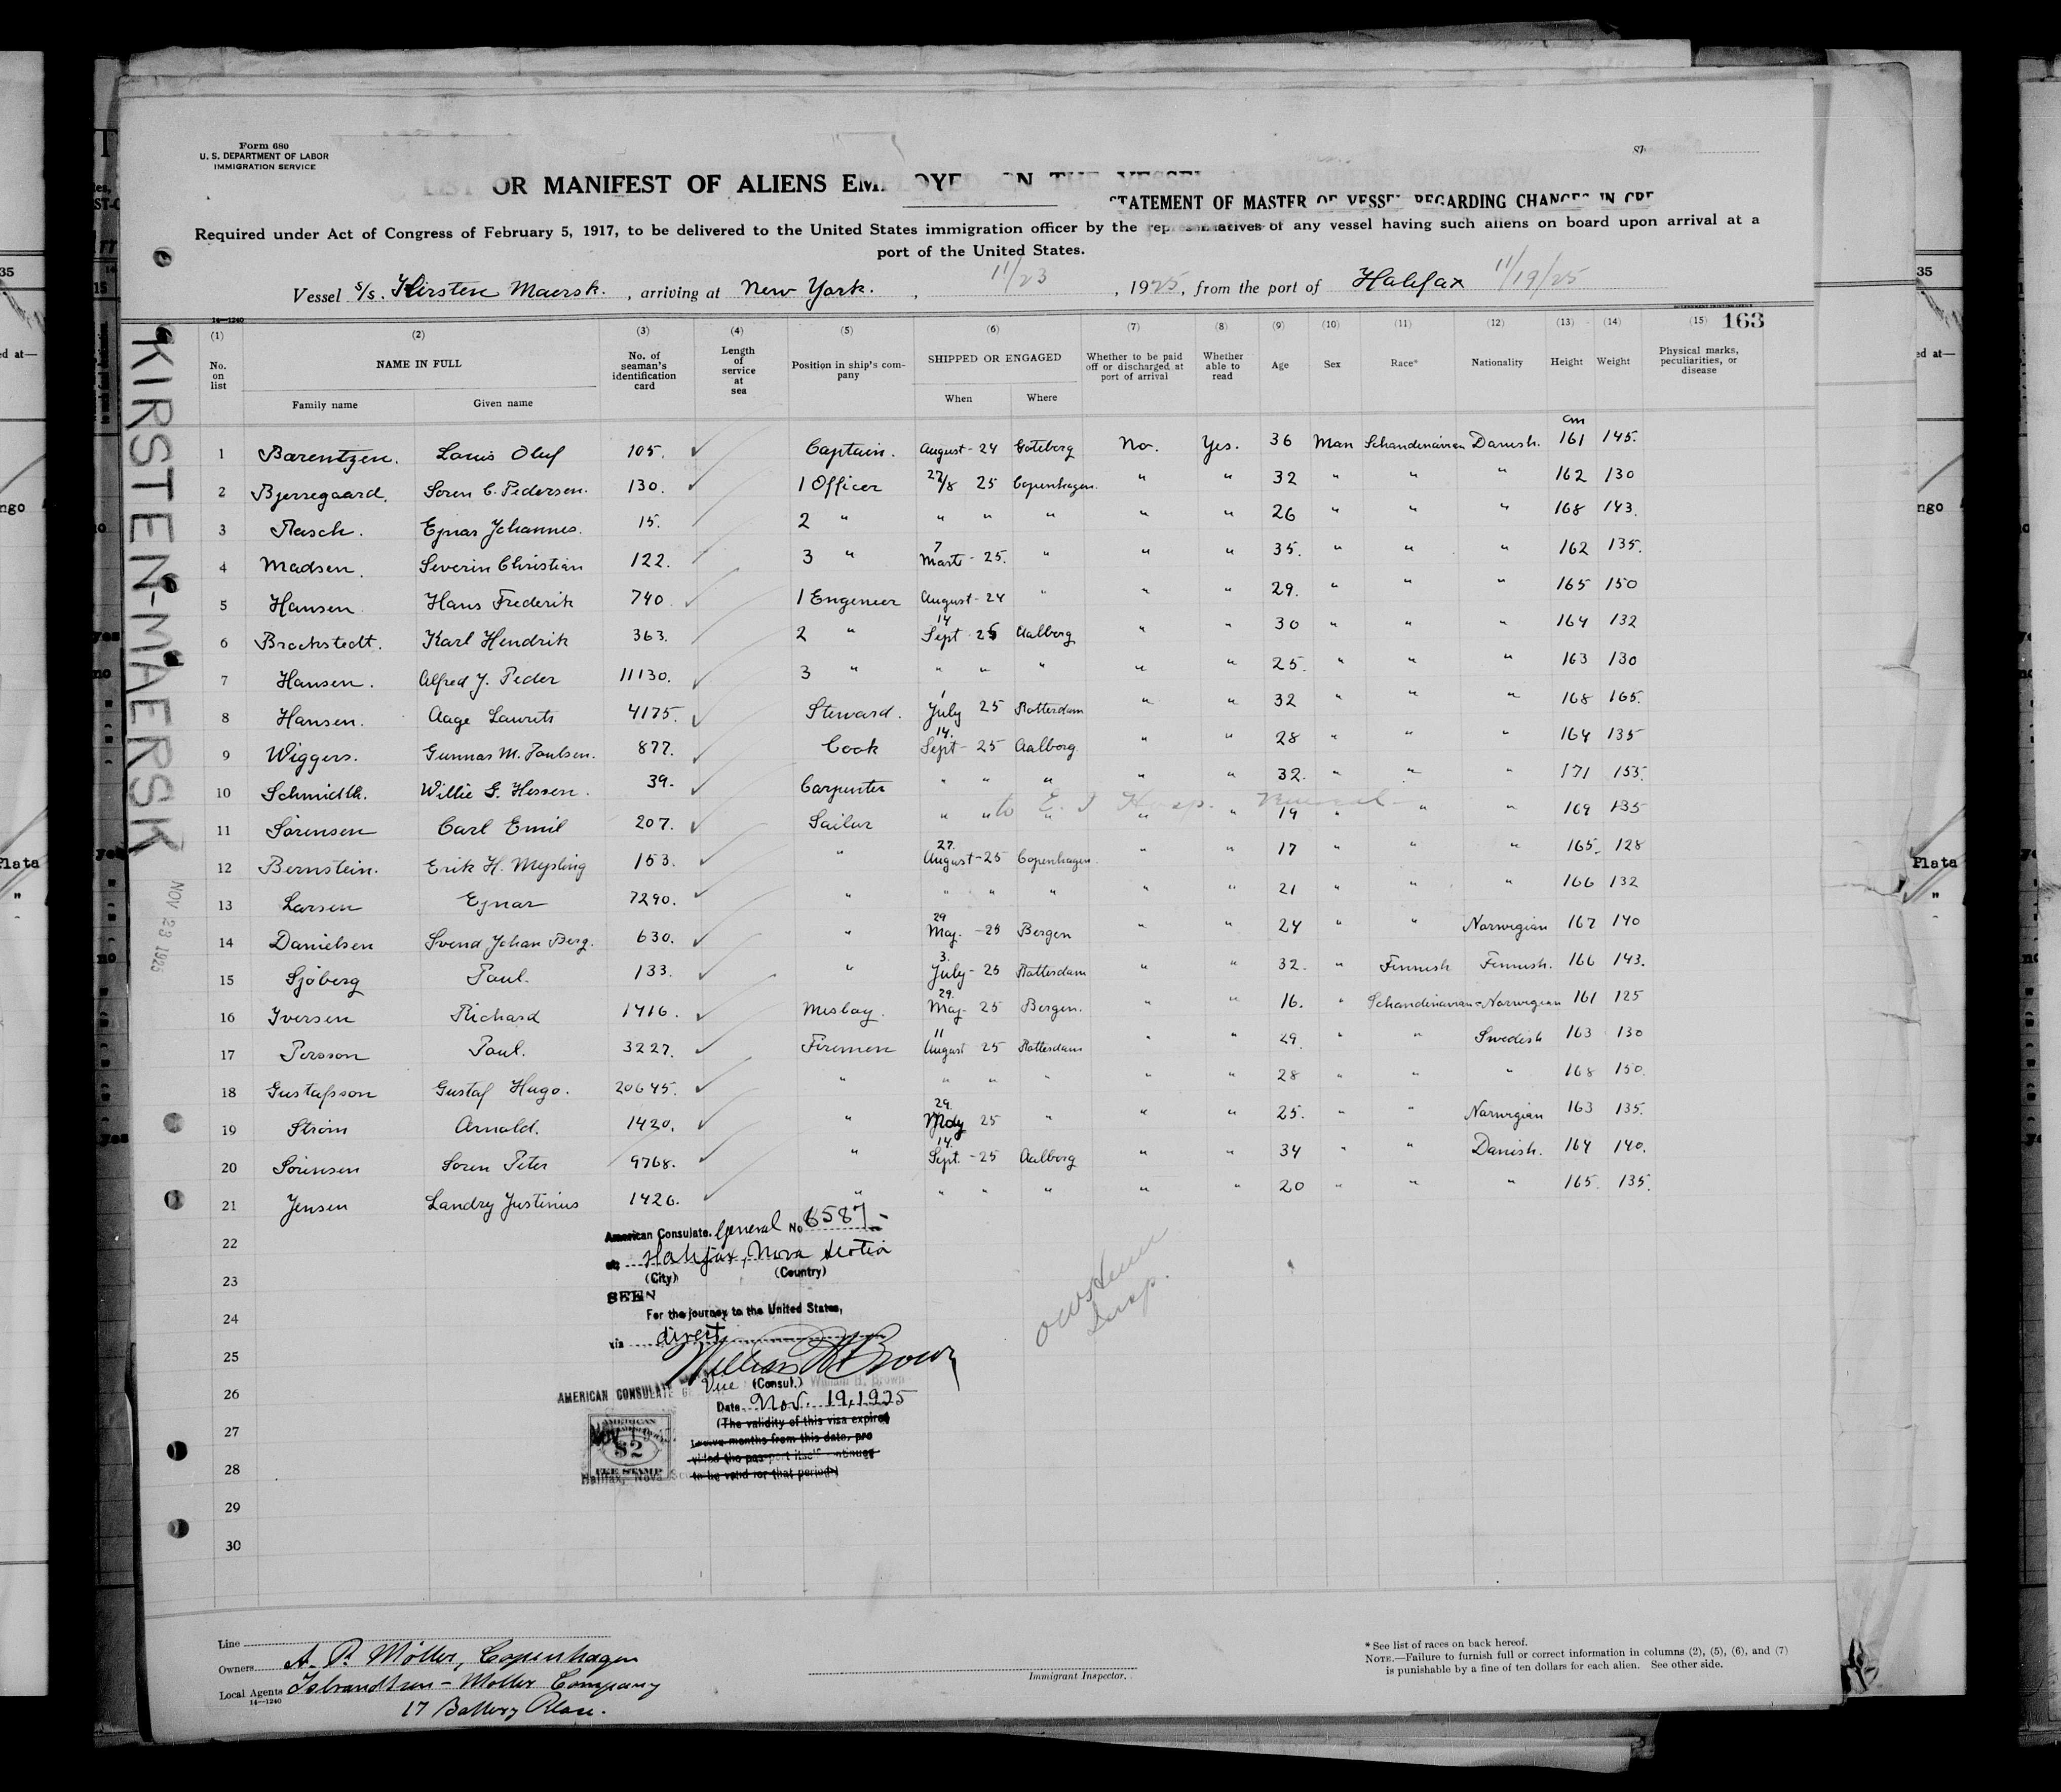 Form 680
U. S. DEPARTMENT OF LABOR
IMMIGRATION SERVICE
LIST OR MANIFEST OF ALIENS EMPLOYED ON THE VESSEL AS MEMBERS OF CREW
STATEMENT OF MASTER OF VESSEL REGARDING CHANGES IN CRE
Required under Act of Congress of February 5, 1917, to be delivered to the United States immigration officer by the representatives of any vessel having such aliens on board upon arrival at a
port of the United States.
Vessel S/S. Kirsten Maersk. , arriving at New York. , 11/23 , 1925, from the port of Halifax 11/19/25
14—1240
163
(1) (2) (3) (4) (5) (6) (7) (8) (9) (10) (11) (12) (13) (14) (15)
No. on list NAME IN FULL No. of seaman's identification card Length of service at sea Position in ship's company SHIPPED OR ENGAGED Whether to be paid off or discharged at port of arrival Whether able to read Age Sex Race* Nationality Height Weight Physical marks, peculiarities, or disease
Family name Given name When Where
cm
1 Barentzen. Louis Oluf 105. Captain. August-24 Goteborg No. Yes. 36 Man Schandenavien Danish. 161 145.
2 Bjerregaard. Soren C. Pedersen. 130. 1 Officer 27/8 25 Copenhagen. " " 32 " " " 162 130
3 Rasch. Ejnar Johannes. 15. 2 " " " " " " 26 " " " 168 143.
4 Madsen. Severin Christian 122. 3 " 7 Marts - 25. " " " 35. " " " 162 135.
5 Hansen Hans Frederik 740 1 Engeneer August-24 " " " 29. " " " 165 150
6 Brockstedt. Karl Hendrik 363. 2 " 14 Sept - 25 Aalborg " " 30 " " " 164 132
7 Hansen. Alfred J. Peder 11130. 3 " " " " " " 25. " " " 163 130
8 Hansen. Aage Laurits 4175. Steward. 1 July 25 Rotterdam " " 32 " " " 168 165.
9 Wiggers. Gunnar M. Paulsen. 877. Cook 14. Sept - 25 Aalborg. " " 28 " " " 164 135
10 Schmidth. Willie G. Hessen. 39. Carpenter " " " " " 32. " " " 171 155.
to E. I Hosp.
11 Sörensen Carl Emil 207. Sailor " " " " " 19 " " 169 135
12 Bernstein. Erik H. Mepling 153. " 27. August-25 Copenhagen. " " 17 " " " 165. 128
13 Larsen Ejnar 7290. " " " " " " 21 " " " 166 132
14 Danielsen Svend Johan Berg. 630. " 29 Maj. - 25 Bergen " " 24 " " Norwegian 167 140
15 Sjöberg Paul. 133. " 3. July - 25 Rotterdam " " 32. " Finnish Finnish. 166 143.
16 Iversen Richard 1416. Mesboy. 29. Maj. 25 Bergen. " " 16. " Schandenavian Norwegian 161 125
17 Persson Paul. 3227. Firemen 11 August 25 Rotterdam " " 29. " " Swedish 163 130
18 Gustafsson Gustaf Hugo. 20645. " " " " " " 28 " " " 168 150.
19 Ström Arnold. 1420. " 29. May 25 " " " 25. " " Norwegian 163 135.
20 Sörensen Soren Peter 9768. " 14. Sept. - 25 Aalborg " " 34 " " Danish. 164 140.
21 Jensen Landry Justinius 1426. " " " " " " 20 " " " 165. 135.
22
23
24
25
26
27
28
29
30
American Consulate. General No 6587
at Halifax, Nova Scotia
(City) (Country)
SEEN
For the journey to the United States,
via direct
William H Brown
Vice (Consul.) William H. Brown
AMERICAN CONSULATE GE
Date Nov. 19, 1925
(The validity of this visa expires
twelve months from this date, pro
vided the passport itself continues
to be valid for that period)
AMERICAN
$2
FEE STAMP
Halifax, Nova Sc
Insp.
KIRSTEN-MAERSK
NOV 23 1925
Line
Owners A. P. Möller, Copenhagen
Local Agents Isbrandtsen - Moller Company
14—1240
17 Battery Place.
Immigrant Inspector.
* See list of races on back hereof.
NOTE.—Failure to furnish full or correct information in columns (2), (5), (6), and (7)
is punishable by a fine of ten dollars for each alien. See other side.